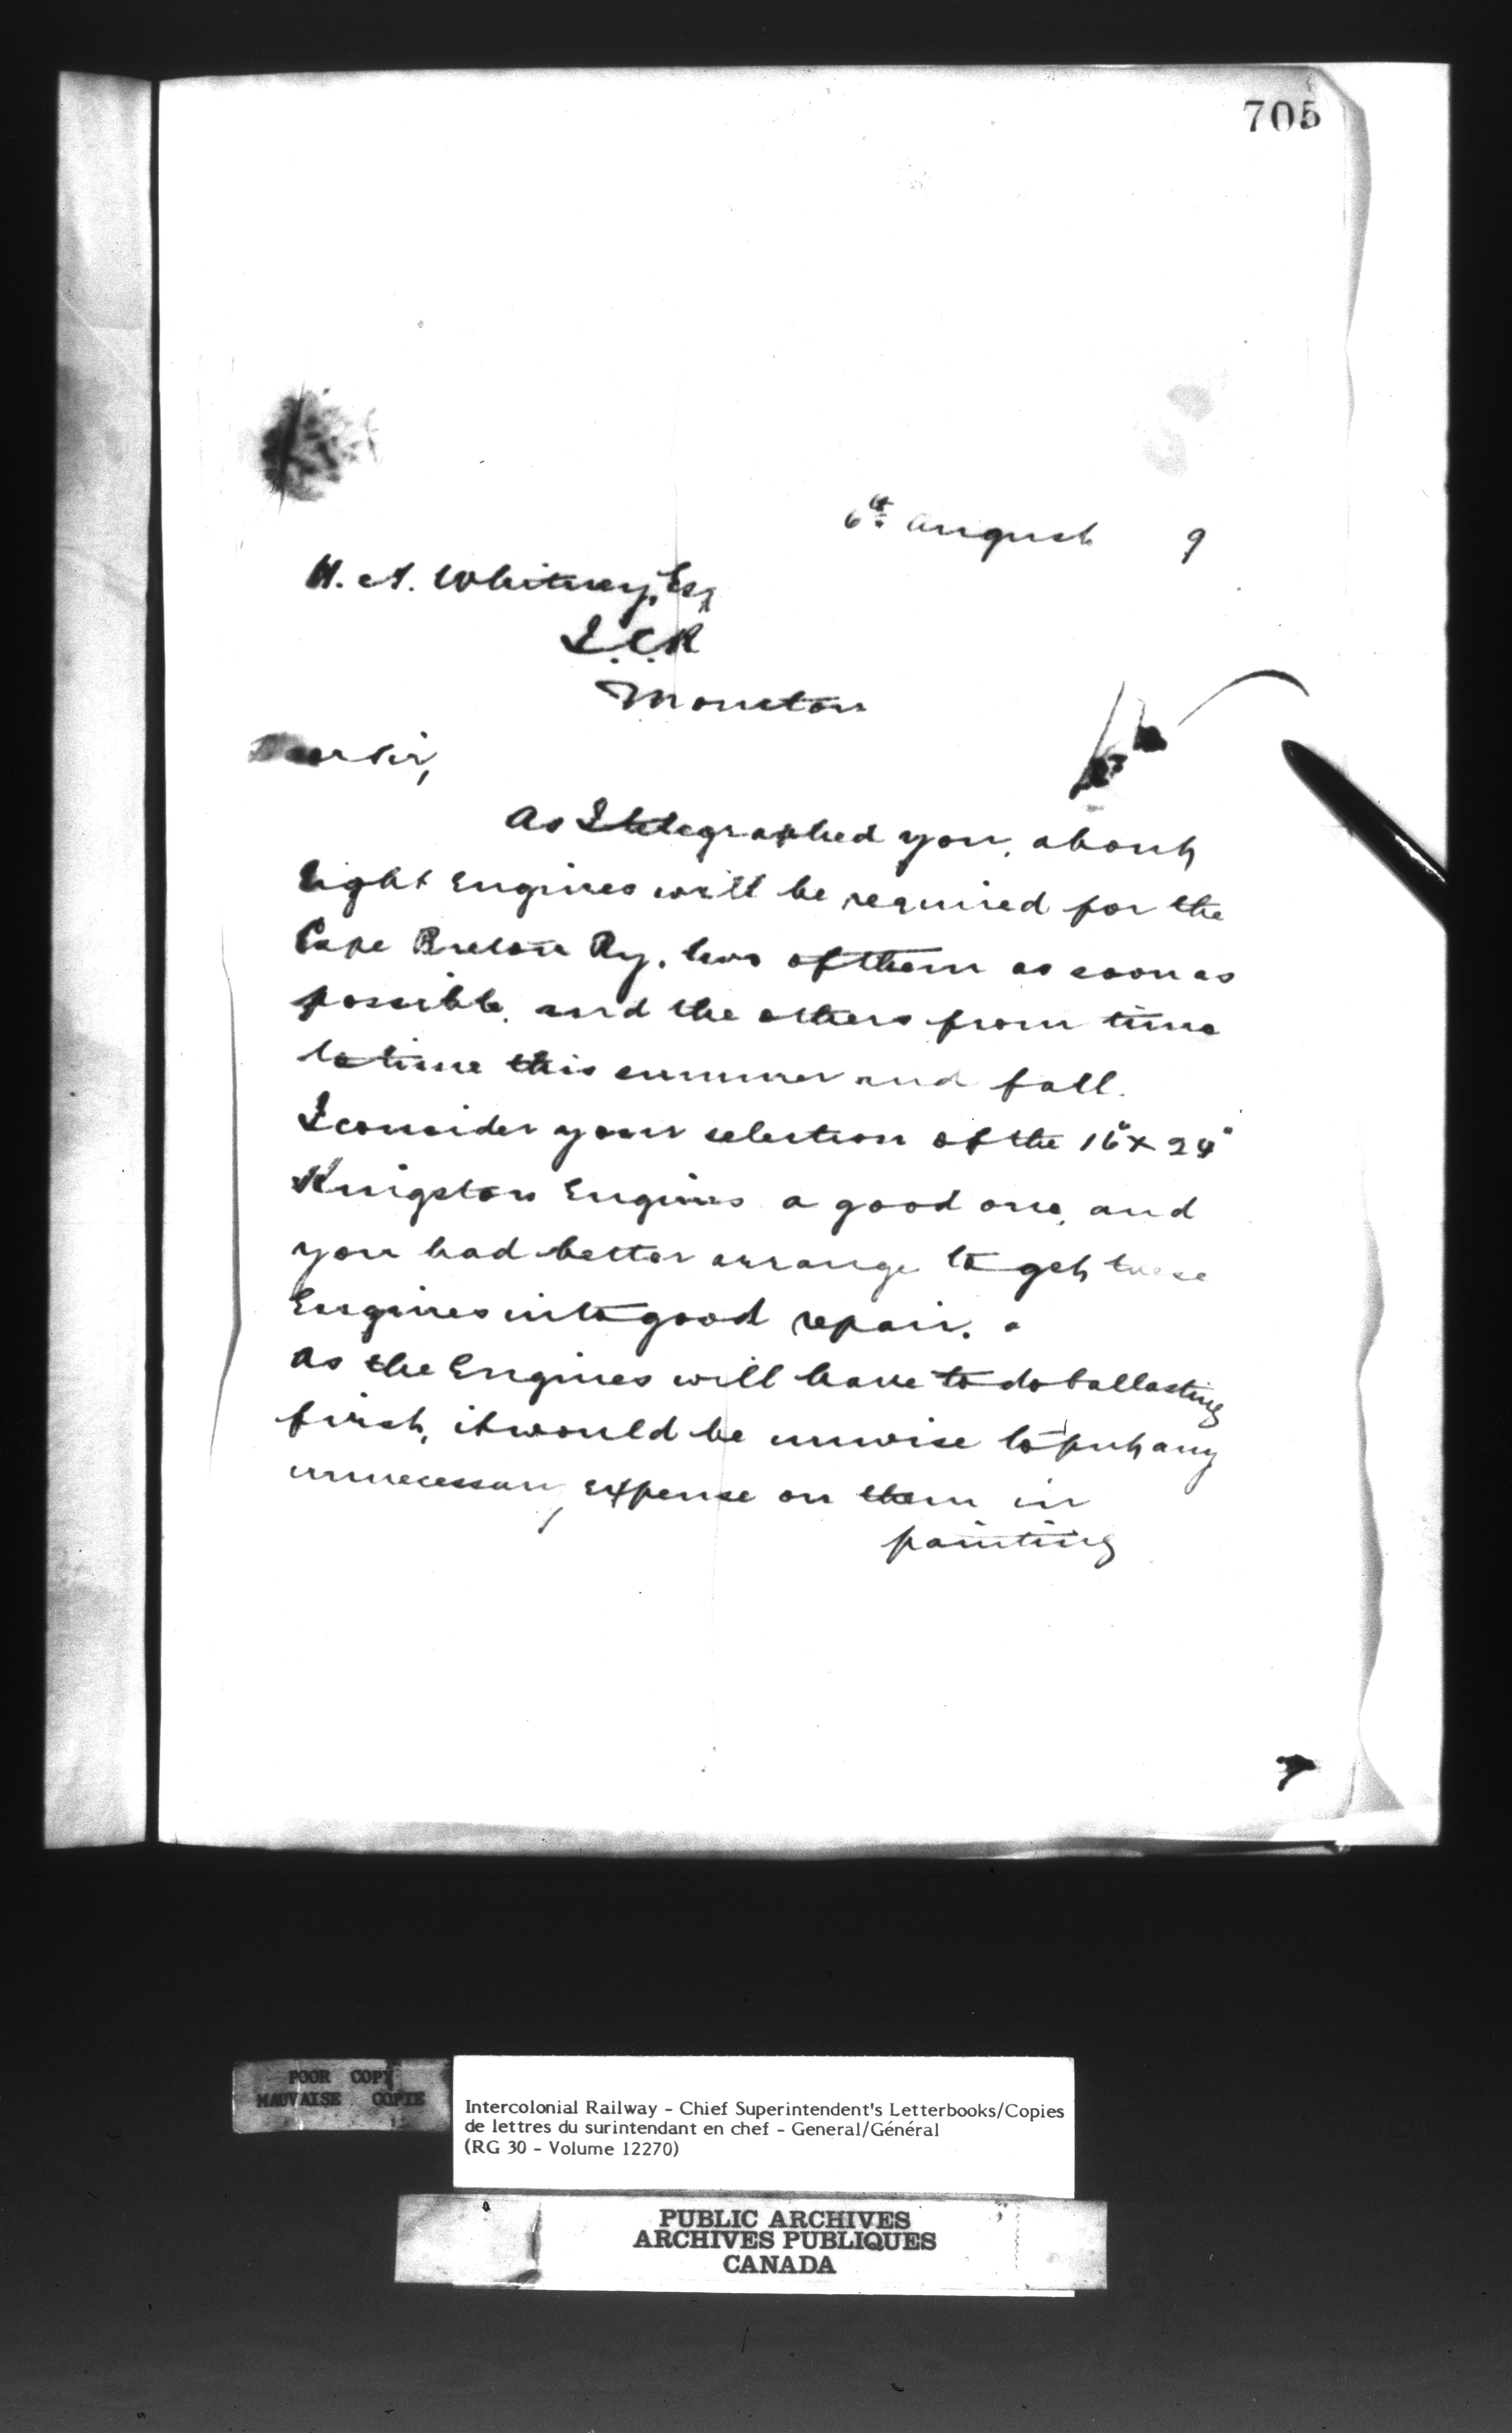 705
6th August 9
H. A. Whitney, Esq
I.C.R
Moncton
Dear Sir,
As I telegraphed you, about
Eight Engines will be required for the
Cape Breton Ry. two of them as soon as
possible, and the others from time
to time this summer and fall.
I consider your selection of the 16" x 24"
Kingston Engines a good one, and
you had better arrange to get these
Engines into good repair.
As the Engines will have to do ballasting
first, it would be unwise to put any
unnecessary expense on them in
painting
POOR COPY
MAUVAISE COPIE
Intercolonial Railway - Chief Superintendent's Letterbooks/Copies
de lettres du surintendant en chef - General/Général
(RG 30 - Volume 12270)
PUBLIC ARCHIVES
ARCHIVES PUBLIQUES
CANADA